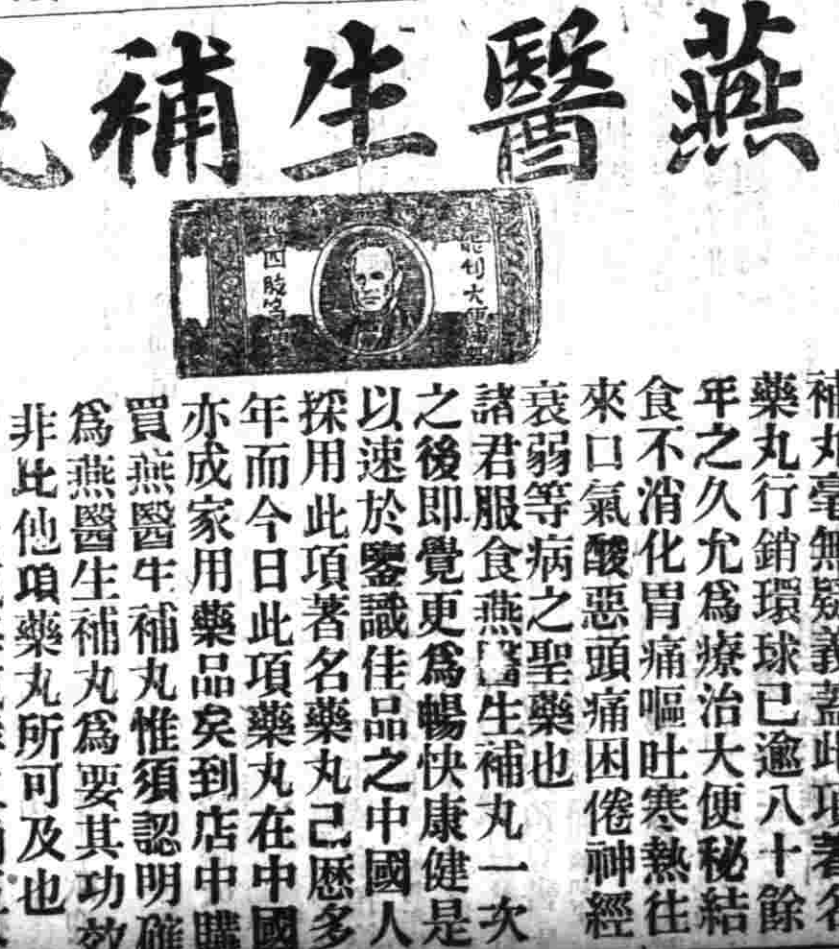 燕醫生補
補丸毫無疑義蓋此項著名
藥丸行銷環球已逾八十餘
年之久允爲療治大便秘結
食不消化胃痛嘔吐寒熱往
來口氣酸惡頭痛困倦神經
衰弱等病之聖藥也
諸君服食燕醫生補丸一次
之後即覺更爲暢快康健是
以速於鑒識佳品之中國人
採用此項著名藥丸己歷多
年而今日此項藥丸在中國
亦成家用藥品矣到店中購
買燕醫生補丸惟須認明確
爲燕醫生補丸爲要其功效
非比他項藥丸所可及也